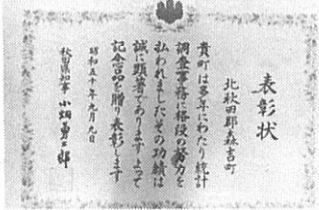 表彰状
北秋田郡森吉町
貴町は多年にわたり統計
調査事務に格段の努力を
払われましたその功績は
誠に顕著でありますよって
記念品を贈り表彰します
昭和五十年九月九日
秋田県知事 小畑勇二郎